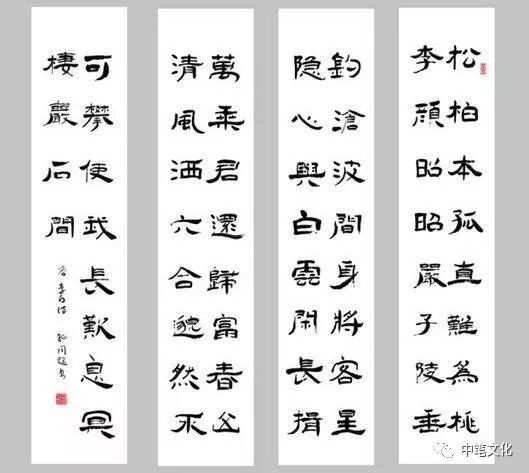 松柏本孤直難為桃
李顔昭昭嚴子陵垂
釣滄波間身將客星
隐心與白雲閑長揖
萬乘君還歸富春山
清風洒六合邈然不
可攀使我長歎息冥
棲巖石間
唐李白詩
中笔文化